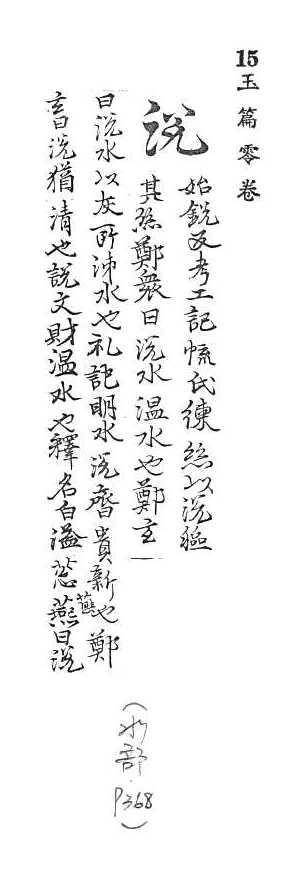 15玉篇零卷
涗
始銳反考工記㡛氏練絲以涗漚
其絲鄭衆曰涗水温水也鄭玄
曰涗水以灰所泲水也礼記明水涗齊貴新也鄭
玄曰涗猶清也說文財温水也釋名白溢燕曰涗
(水部 P368)